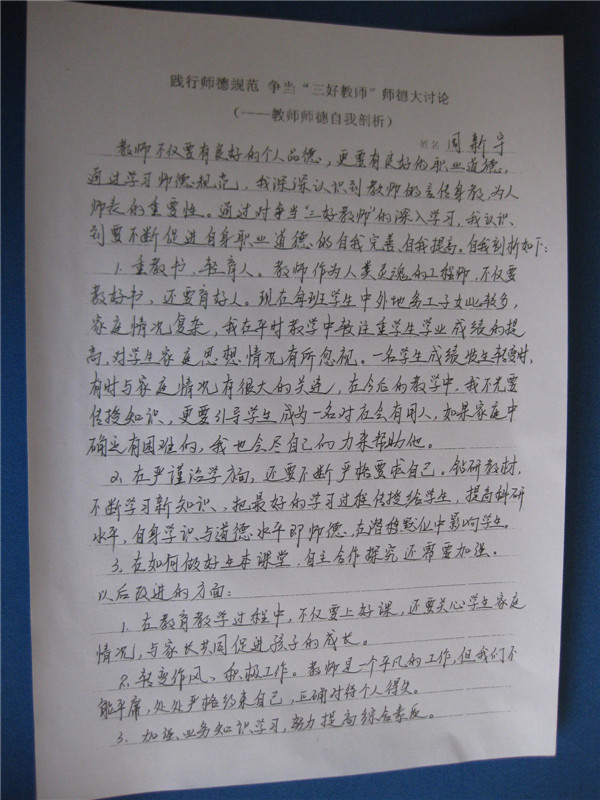 践行师德规范 争当“三好教师”师德大讨论
(——教师师德自我剖析)
姓名 周新宇
教师不仅要有良好的个人品德，更要有良好的职业道德，
通过学习师德规范，我深深认识到教师的言传身教，为人
师表的重要性。通过对争当“三好教师”的深入学习，我认识
到要不断促进自身职业道德的自我完善、自我提高。自我剖析如下：
1. 重教书，轻育人。教师作为人类灵魂的工程师，不仅要
教好书，还要育好人。现在每班学生中外地务工子女比较多，
家庭情况复杂，我在平时教学中较注重学生学业成绩的提
高，对学生家庭思想情况有所忽视。一名学生成绩发生转变时，
有时与家庭情况有很大的关连，在今后的教学中，我不光要
传授知识，更要引导学生成为一名对社会有用人，如果家庭中
确定有困难的，我也会尽自己的力来帮助他。
2. 在严谨治学方面，还要不断严格要求自己。钻研教材，
不断学习新知识、把最好的学习过程传授给学生，提高科研
水平，自身学识与道德水平即师德，在潜移默化中影响学生。
3. 在如何做好生本课堂，自主合作探究还需要加强。
以后改进的方面：
1. 在教育教学过程中，不仅要上好课，还要关心学生家庭
情况，与家长共同促进孩子的成长。
2. 转变作风、积极工作。教师是一个平凡的工作，但我们不
能平庸，处处严格约束自己，正确对待个人得失。
3. 加强业务知识学习，努力提高综合素质。